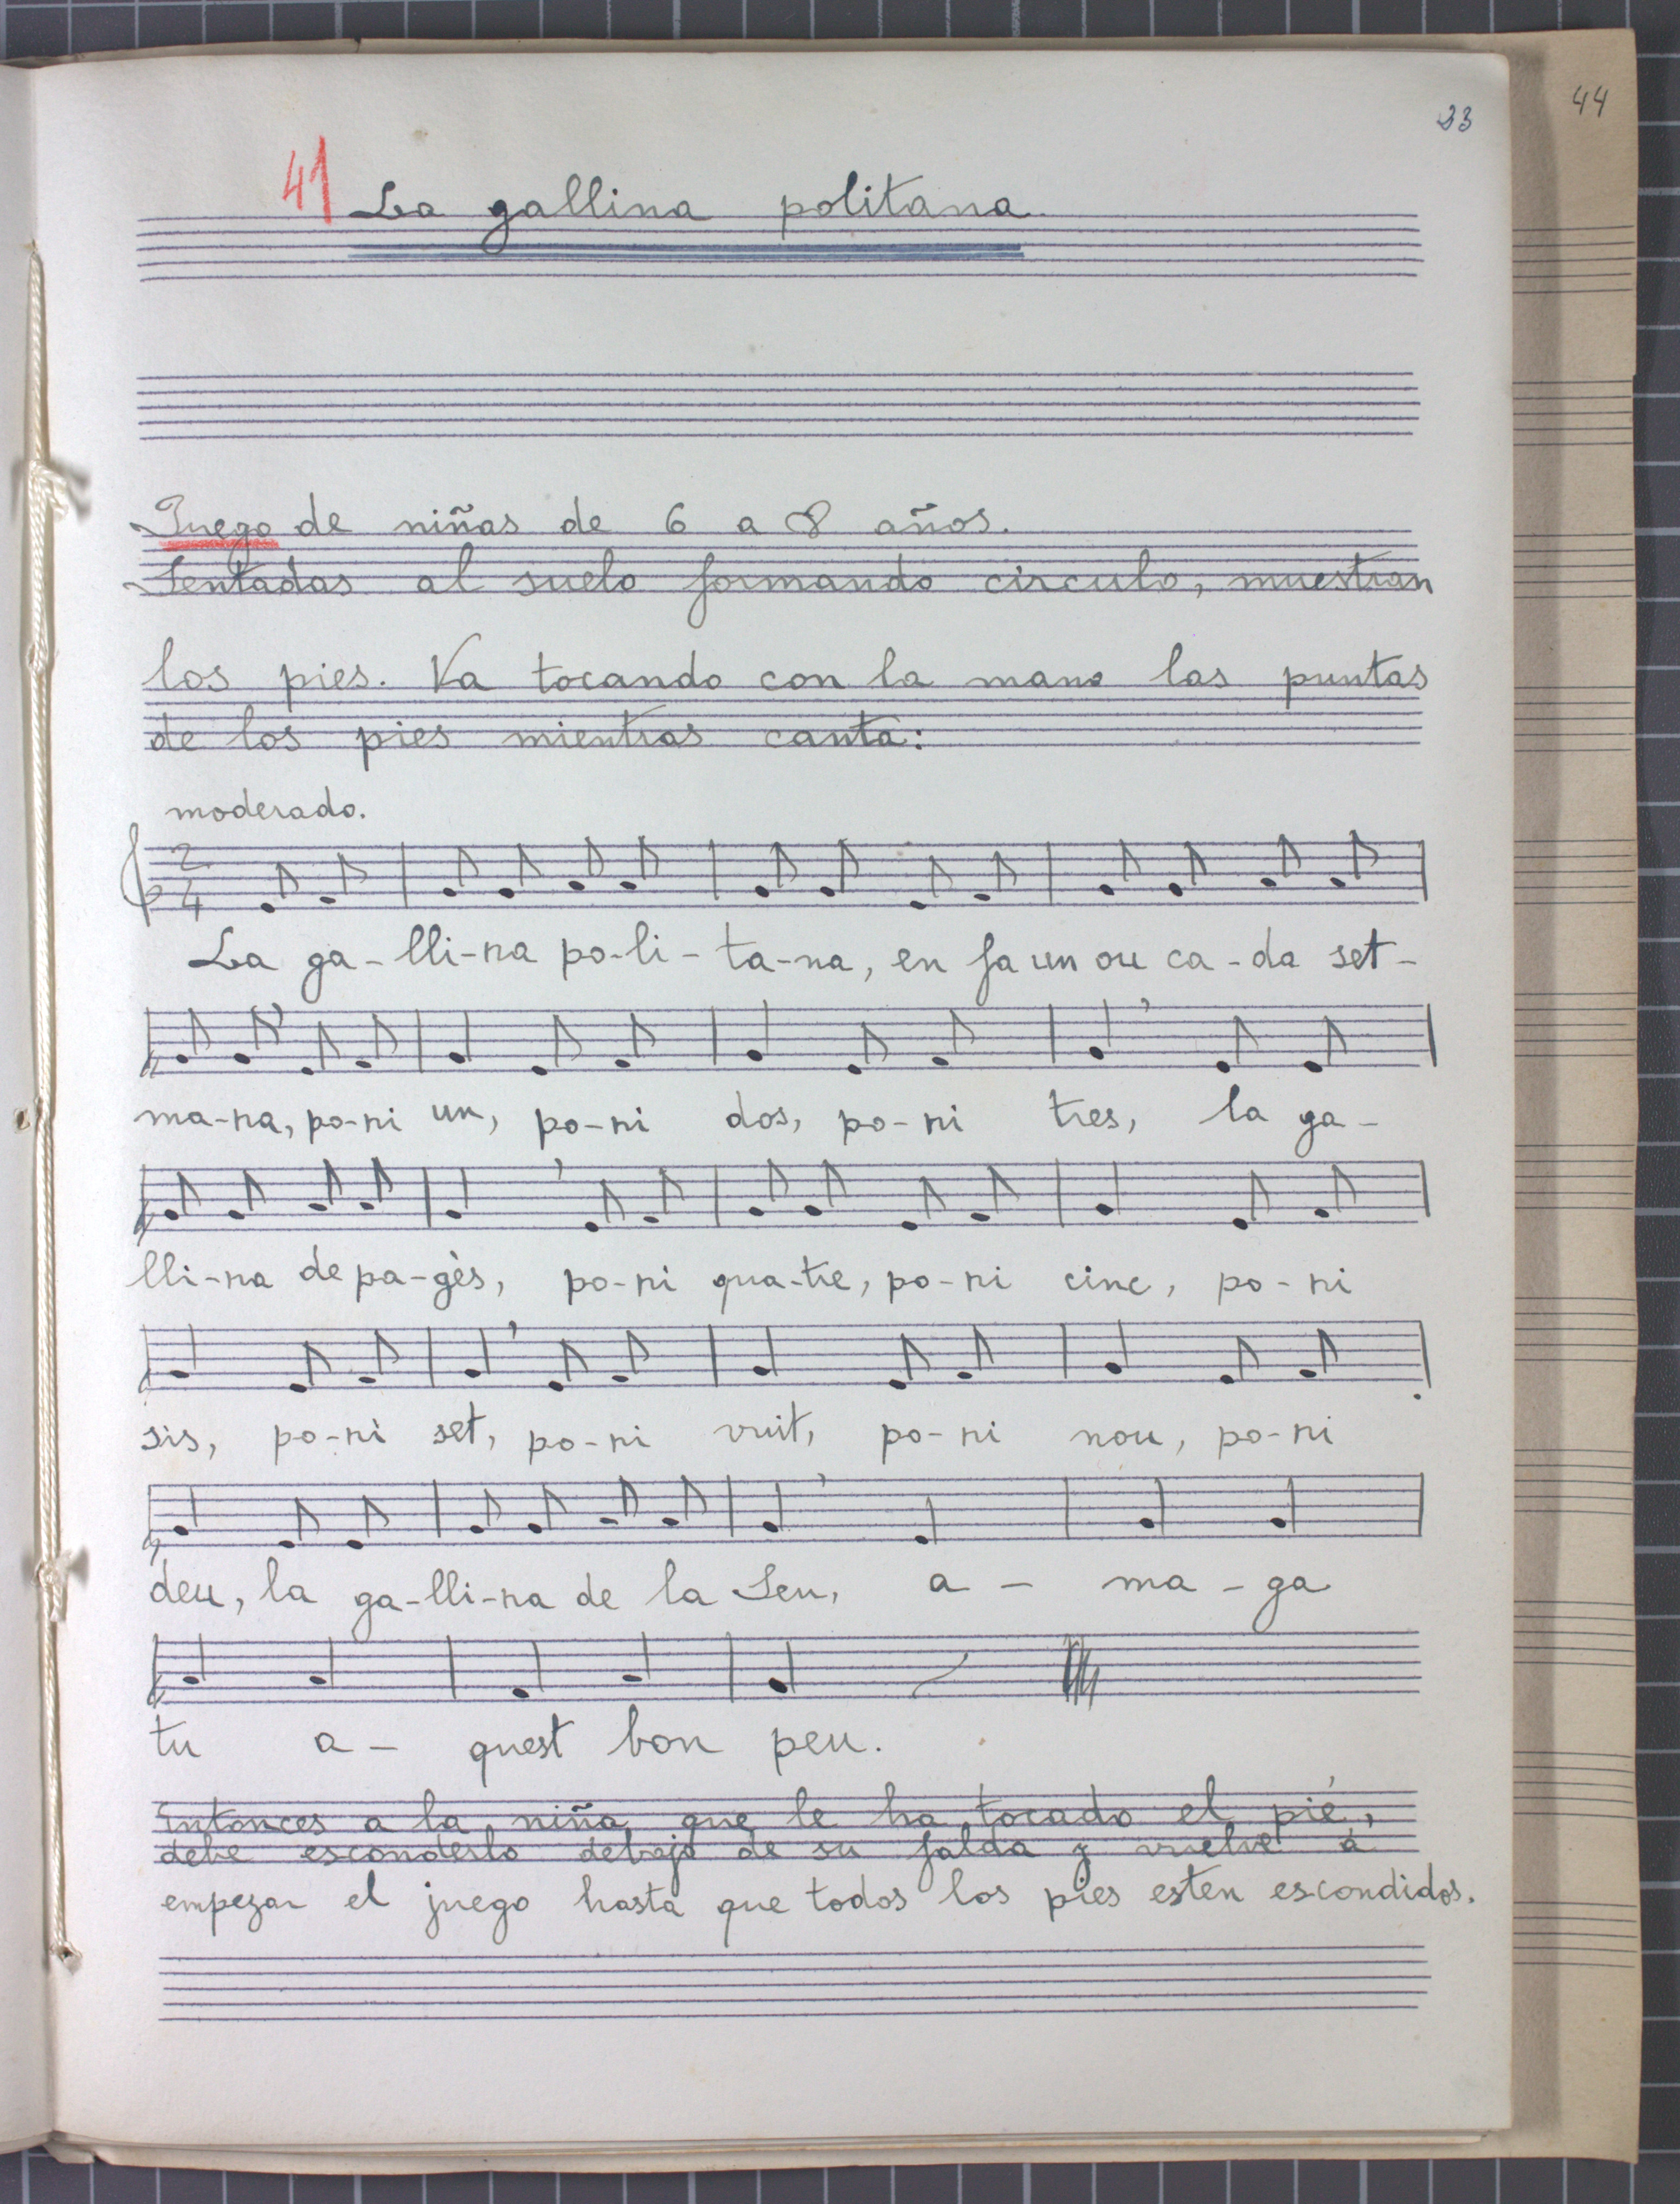 44
33
41 La gallina politana.
Juego de niñas de 6 a 8 años.
Sentadas al suelo formando circulo, muestran
los pies. Va tocando con la mano las puntas
de los pies mientras canta:
moderado.
2
4
La ga-lli-na po-li-ta-na, en fa un ou ca-da set-
ma-na, po-ni un, po-ni dos, po-ni tres, la ga-
lli-na de pa-gès, po-ni qua-tre, po-ni cinc, po-ni
sis, po-ni set, po-ni vuit, po-ni nou, po-ni
deu, la ga-lli-na de la Seu, a- ma-ga
tu a- quest bon peu.
Entonces a la niña que le ha tocado el pié,
debe esconderlo debajo de su falda y vuelve á
empezar el juego hasta que todos los pies esten escondidos.